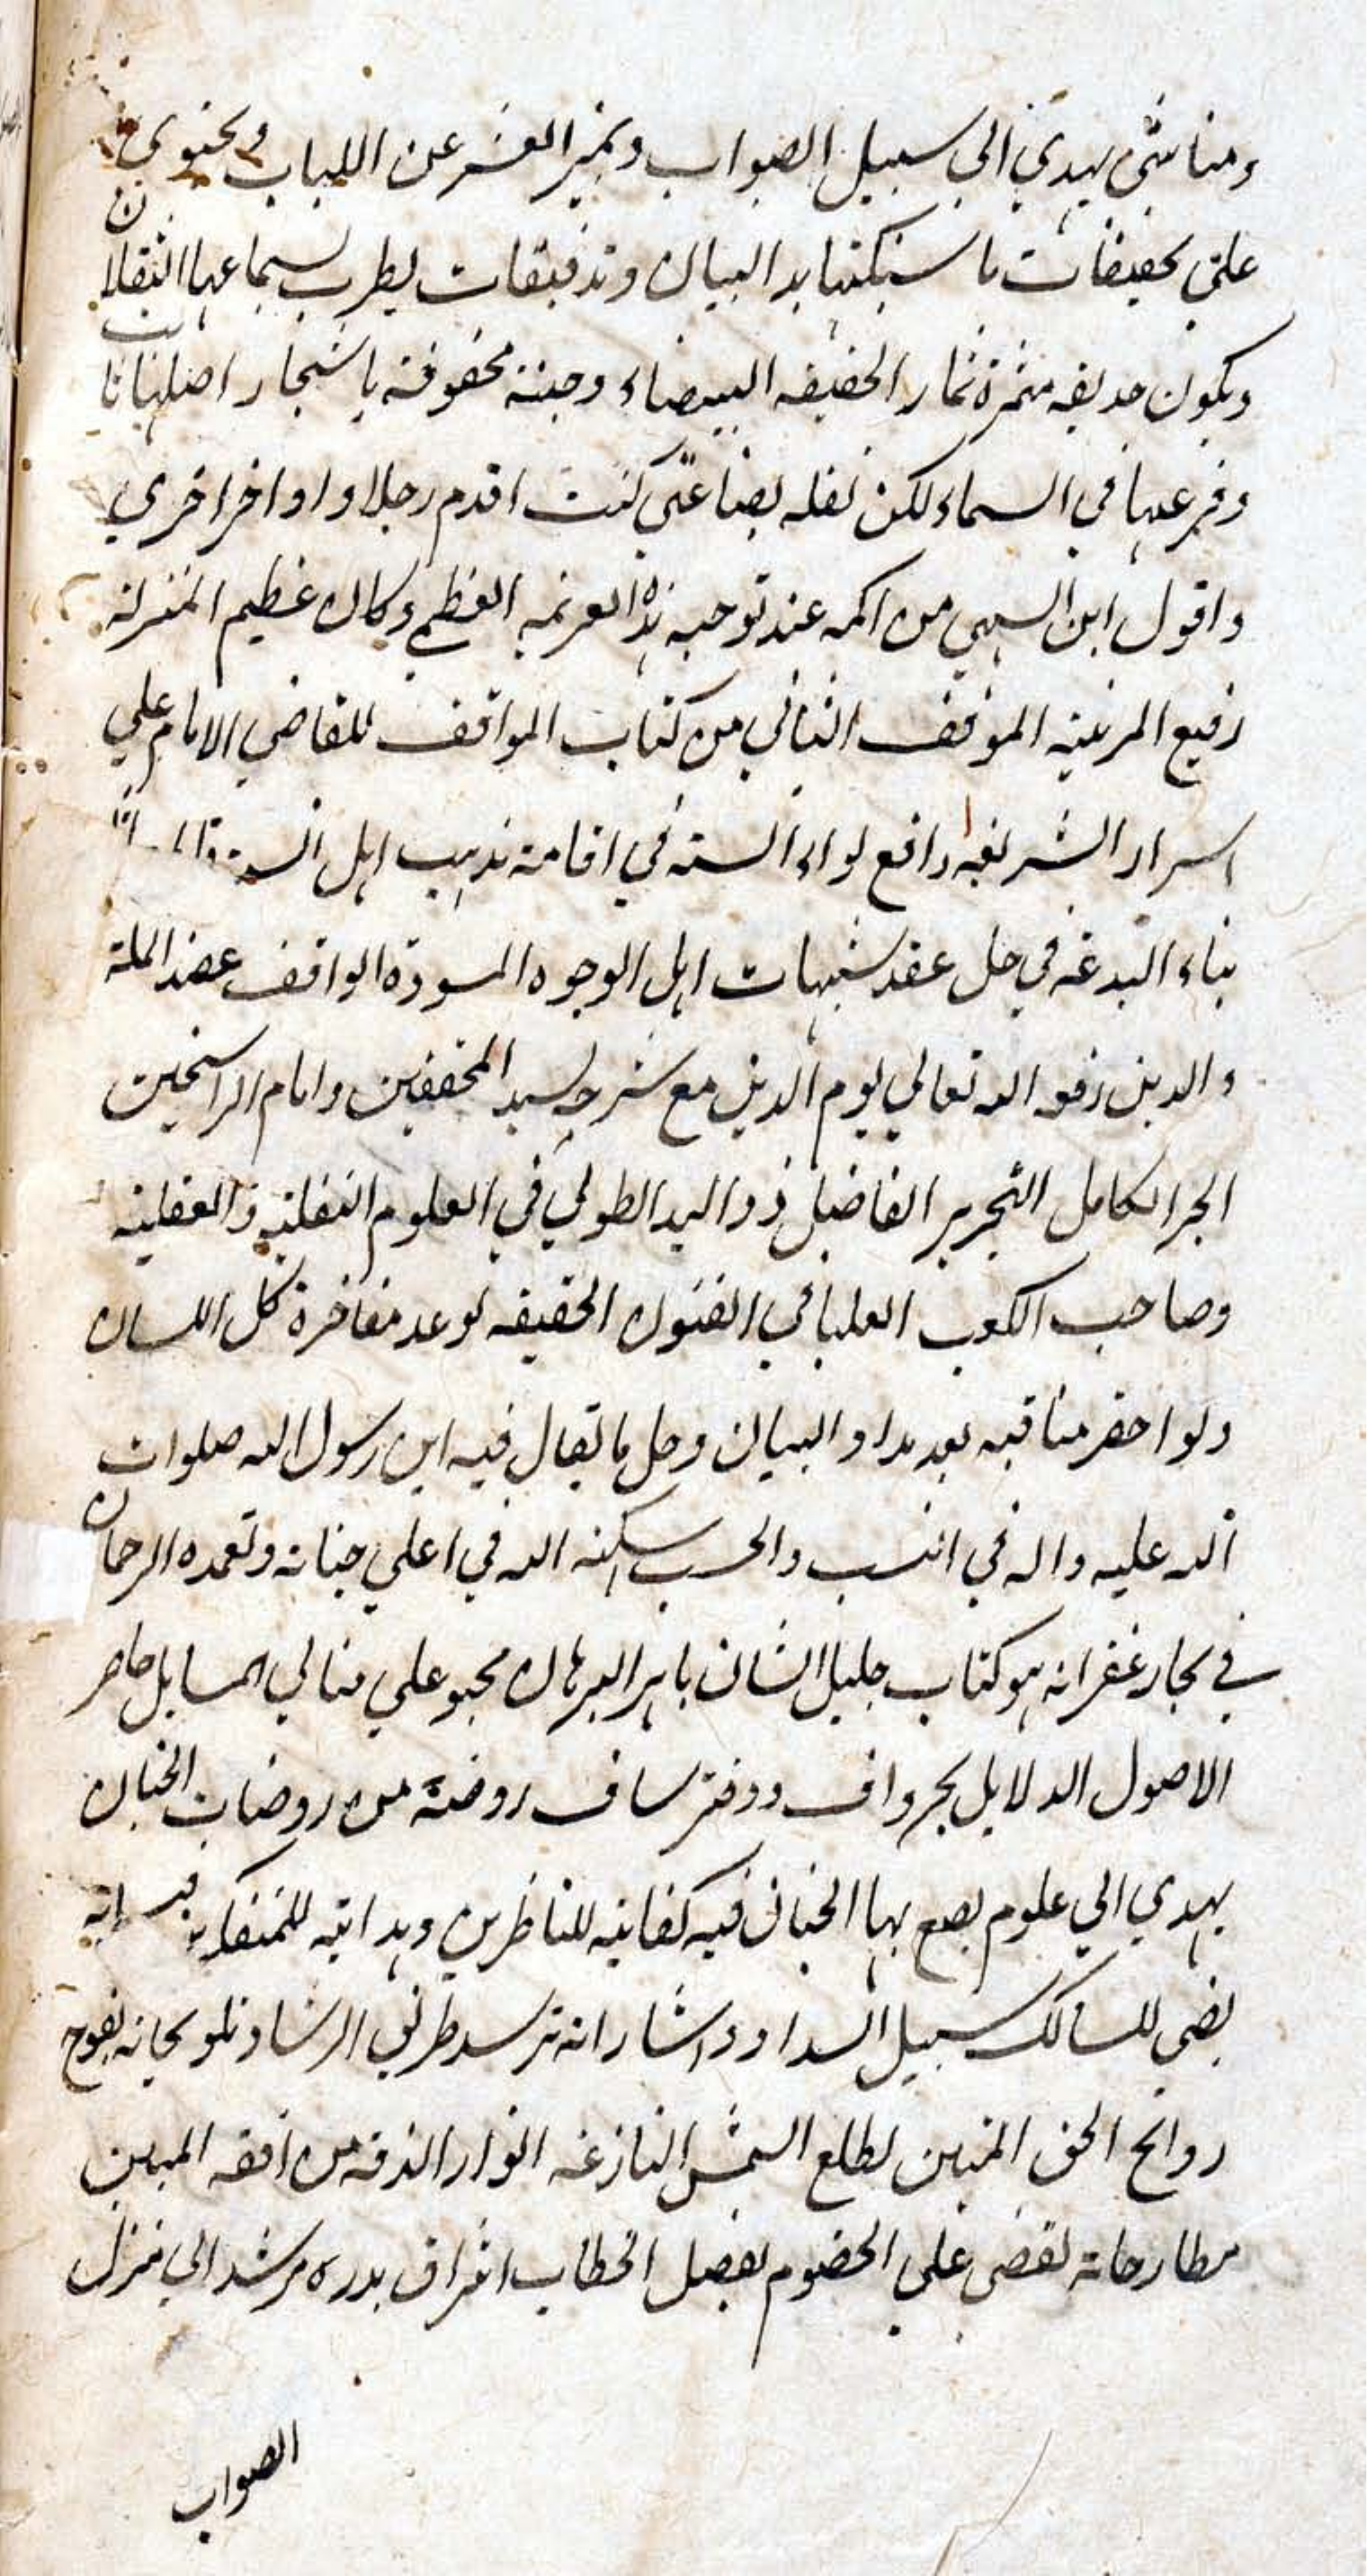 ومناشئ يهدي الي سبيل الصواب ويميز القشر عن اللباب ويحتوي
علي تحقيقات ما سبكتها يد البيان وتدقيقات يطرب بسماعها الثقلان
ويكون حديقه مثمرة ثمار الحقيقه البيضاء وجنة محفوفة باشجار اصلها ثابت
وفرعها في السماء لكن لقله بضاعتي كنت اقدم رجلا واواخر اخري
واقول اين السهي من اكمه عند توجيه هذه العزيمه العظمي وكان عظيم المنزلة
رفيع المرتبة الموقف الثاني من كتاب المواقف للقاضي الامام علي
اسرار الشريفه رافع لواء السنة في اقامة مذهب اهل السنة
بناء البدعه في حل عقد شبهات اهل الوجوه المسودة الواقف عضد الملة
والدين رفعه الله تعالي يوم الدين مع شرحه لسيد المحققين وامام الراسخين
الحبر الكامل النحرير الفاضل ذو اليد الطولي في العلوم النقلية والعقلية
وصاحب الكعب العليا في الفنون الحقيقه لو عد مفاخرة كل اللسان
ولو احضر مناقبه بعد مداد البيان وجل ما يقال فيه ابن رسول الله صلوات
الله عليه واله في النسب والحسب اسكنه الله في اعلي جنانه وتغمده الرحمان
في بحار غفرانه هو كتاب جليل الشان باهر البرهان محتو علي متالي المسايل حاصر
الاصول الدلايل بحر واف ودفتر ساف روضة من روضات الجنان
يهدي الي علوم بها الجنان فيه كفاية للناظرين وهداية للمتفكرين
يضي للسالك سبيل السداد واشاراته ترسد طريق الرشاد وتلويحاته يفوح
روايح الحق المتين لطلع الشمس البازغه انوار الذقه من افقه المبين
مطارحاته لقضي علي الخضوم بفصل الخطاب اشراق بدره مرشد الي منزل
الصواب